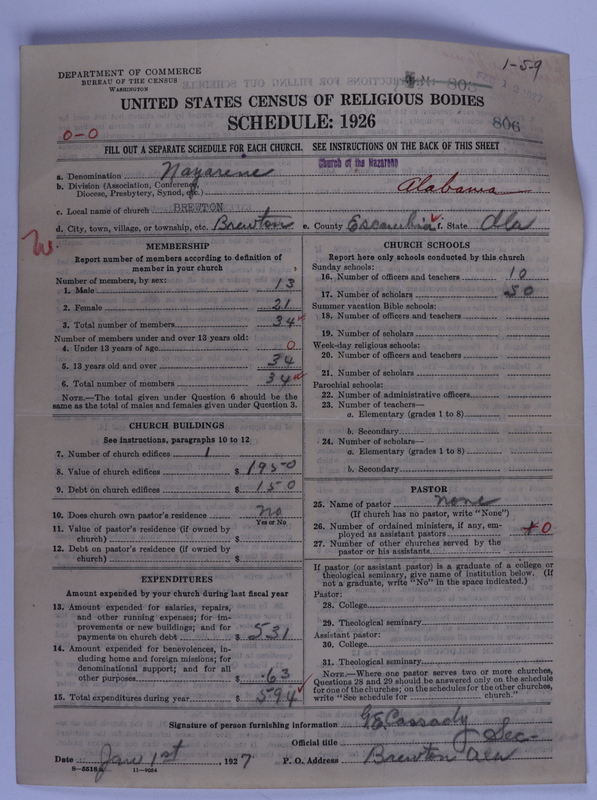 1-59
DEPARTMENT OF COMMERCE
BUREAU OF THE CENSUS
WASHINGTON
UNITED STATES CENSUS OF RELIGIOUS BODIES
SCHEDULE: 1926
806
0-0
FILL OUT A SEPARATE SCHEDULE FOR EACH CHURCH. SEE INSTRUCTIONS ON THE BACK OF THIS SHEET
Church of the Nazarene
a. Denomination Nazarene
b. Division (Association, Conference, Diocese, Presbytery, Synod, etc.) Alabama
c. Local name of church BREWTON
d. City, town, village, or township, etc. Brewton e. County Escambia f. State Ala
MEMBERSHIP
Report number of members according to definition of
member in your church
Number of members, by sex:
1. Male 13
2. Female 21
3. Total number of members 34
Number of members under and over 13 years old:
4. Under 13 years of age 0
5. 13 years old and over 34
6. Total number of members 34
NOTE.—The total given under Question 6 should be the
same as the total of males and females given under Question 3.
CHURCH BUILDINGS
See instructions, paragraphs 10 to 12
7. Number of church edifices 1
8. Value of church edifices $ 1950
9. Debt on church edifices $ 150
10. Does church own pastor's residence no
Yes or No
11. Value of pastor's residence (if owned by
church) $
12. Debt on pastor's residence (if owned by
church) $
EXPENDITURES
Amount expended by your church during last fiscal year
13. Amount expended for salaries, repairs,
and other running expenses; for im-
provements or new buildings; and for
payments on church debt $ 531
14. Amount expended for benevolences, in-
cluding home and foreign missions; for
denominational support; and for all
other purposes $ 63
15. Total expenditures during year $ 594
CHURCH SCHOOLS
Report here only schools conducted by this church
Sunday schools:
16. Number of officers and teachers 10
17. Number of scholars 50
Summer vacation Bible schools:
18. Number of officers and teachers
19. Number of scholars
Week-day religious schools:
20. Number of officers and teachers
21. Number of scholars
Parochial schools:
22. Number of administrative officers
23. Number of teachers—
a. Elementary (grades 1 to 8)
b. Secondary
24. Number of scholars—
a. Elementary (grades 1 to 8)
b. Secondary
PASTOR
25. Name of pastor none
(If church has no pastor, write "None")
26. Number of ordained ministers, if any, em-
ployed as assistant pastors 0
27. Number of other churches served by the
pastor or his assistants
If pastor (or assistant pastor) is a graduate of a college or
theological seminary, give name of institution below. (If
not a graduate, write "No" in the space indicated.)
Pastor:
28. College
29. Theological seminary
Assistant pastor:
30. College
31. Theological seminary
NOTE.—Where one pastor serves two or more churches,
Questions 28 and 29 should be answered only on the schedule
for one of the churches; on the schedules for the other churches,
write "See schedule for church."
Signature of person furnishing information G.E. Cassady
Official title Sec-
Date Jan 1st, 1927 P. O. Address Brewton Ala
8-5518a 11-9084